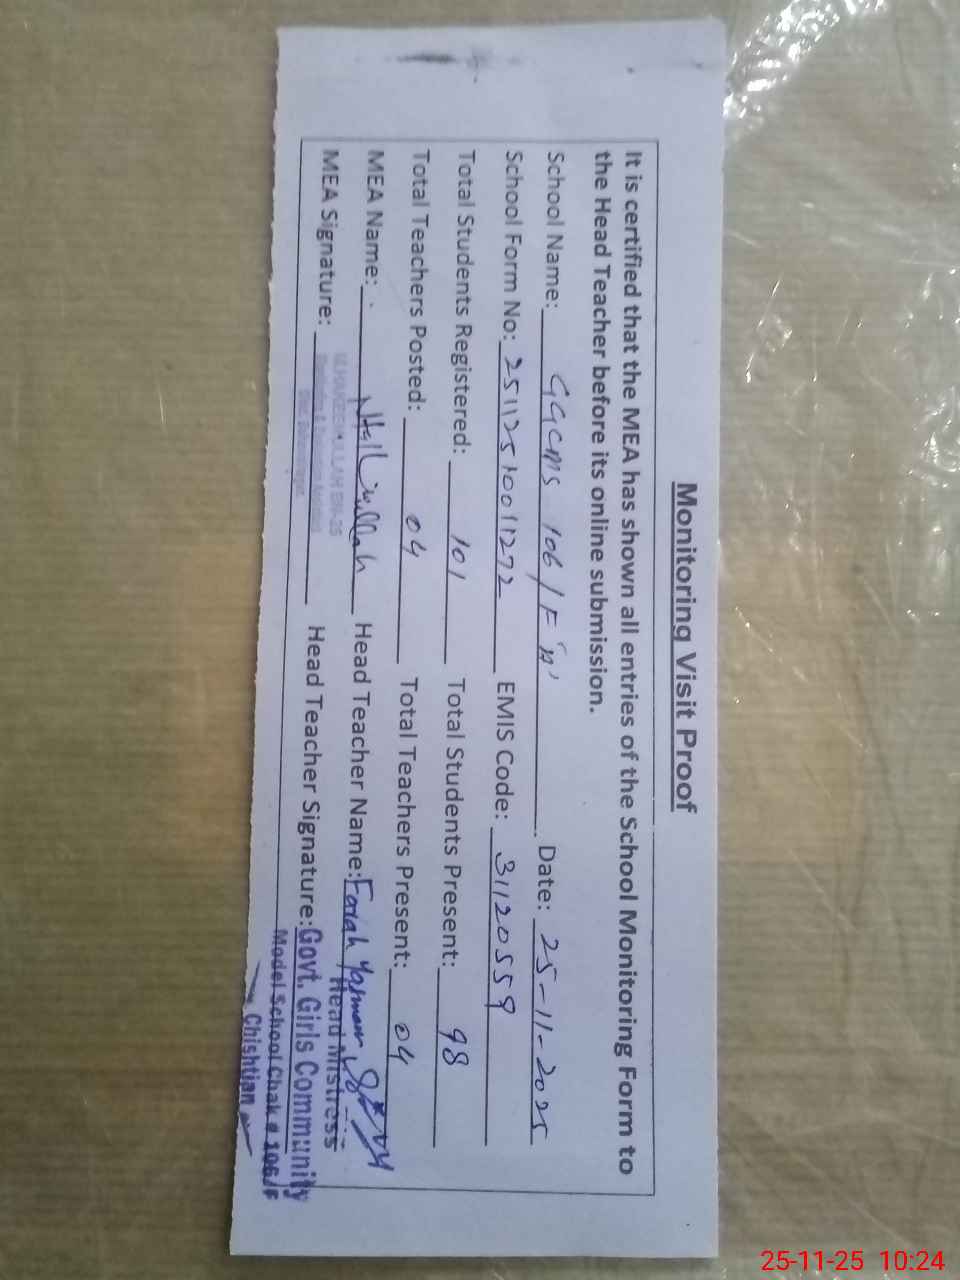 Monitoring Visit Proof
It is certified that the MEA has shown all entries of the School Monitoring Form to
the Head Teacher before its online submission.
School Name: GGCMS 106/F 'A' Date: 25-11-2025
School Form No: 2511251001 1272 EMIS Code: 31120559
Total Students Registered: 101 Total Students Present: 98
Total Teachers Posted: 04 Total Teachers Present: 04
MEA Name: Head Teacher Name: Farah Yasmeen
MEA Signature: Head Teacher Signature:
Head Mistress
Govt. Girls Community
Model School Chak # 106/F
Chishtian
25-11-25 10:24